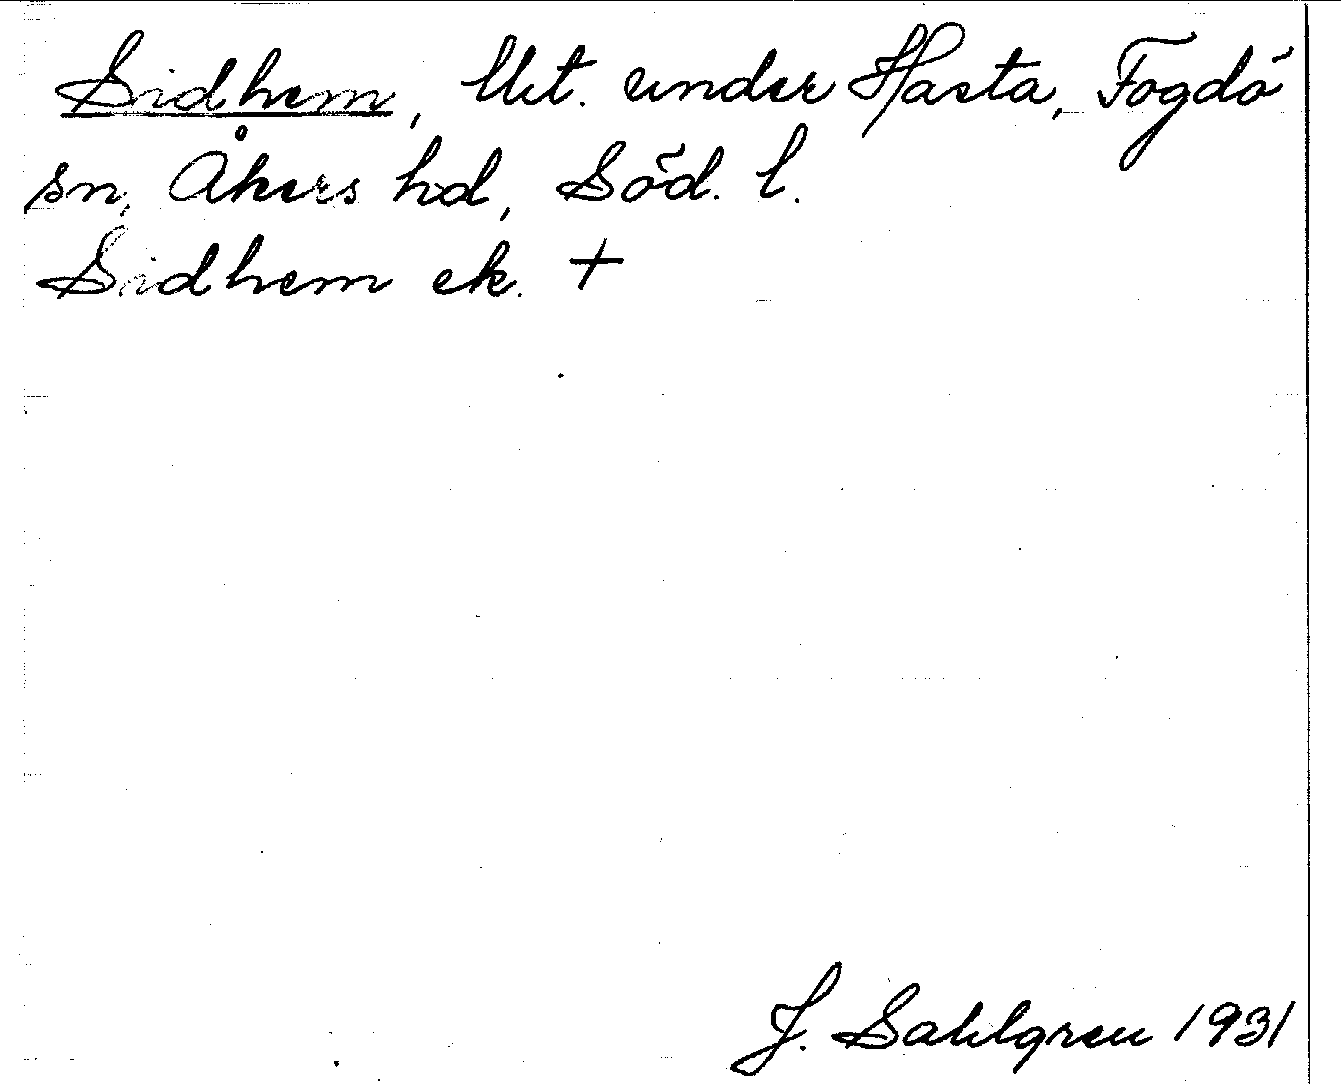 Sidhem, lht. under Hasta, Fogdö
sn, Åkers hd, Söd. l.
Sidhem ek. +
J. Sahlgren 1931